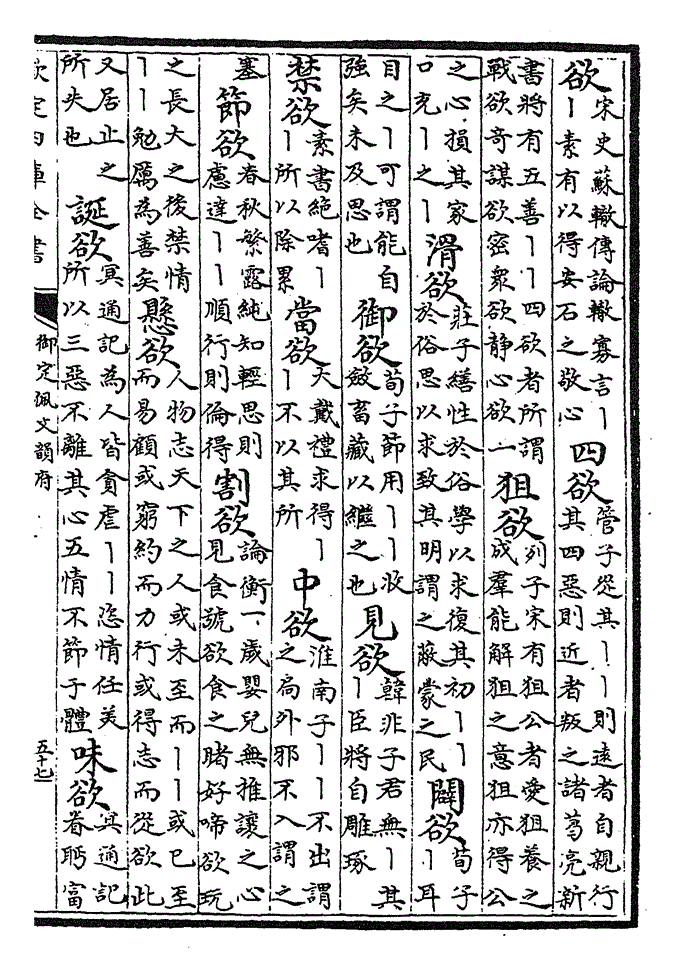 欲宋史蘇轍傳論轍寡言丨
丨素有以得安石之敬心
四欲管子從其丨丨則遠者自親行
其四惡則近者叛之諸葛亮新
書將有五善丨丨四欲者所謂
戰欲奇謀欲密衆欲靜心欲一
狙欲列子宋有狙公者愛狙養之
成羣能解狙之意狙亦得公
之心損其家
口充丨之丨
滑欲莊子繕性於俗學以求復其初丨丨
於俗思以求致其明謂之蔽蒙之民
闢欲荀子
丨耳
目之丨可謂能自
強矣未及思也
御欲荀子節用丨丨收
斂畜藏以繼之也
見欲韓非子君無丨其
丨臣將自雕琢
禁欲素書絕嗜丨
丨所以除累
當欲大戴禮求得丨
丨不以其所
中欲淮南子丨丨不出謂
之扃外邪不入謂之
塞
節欲春秋繁露純知輕思則
慮達丨丨順行則倫得
割欲論衡一歲嬰兒無推讓之心
見食號欲食之睹好啼欲玩
之長大之後禁情
丨丨勉厲為善矣
懸欲人物志天下之人或未至而丨丨或已至
而易顧或窮約而力行或得志而從欲此
又居止之
所失也
誕欲冥通記為人皆貪虐丨丨恣情任美
所以三惡不離其心五情不節子體
味欲冥通記
眷眄富
欽定四庫全書
御定佩文韻府
五十七